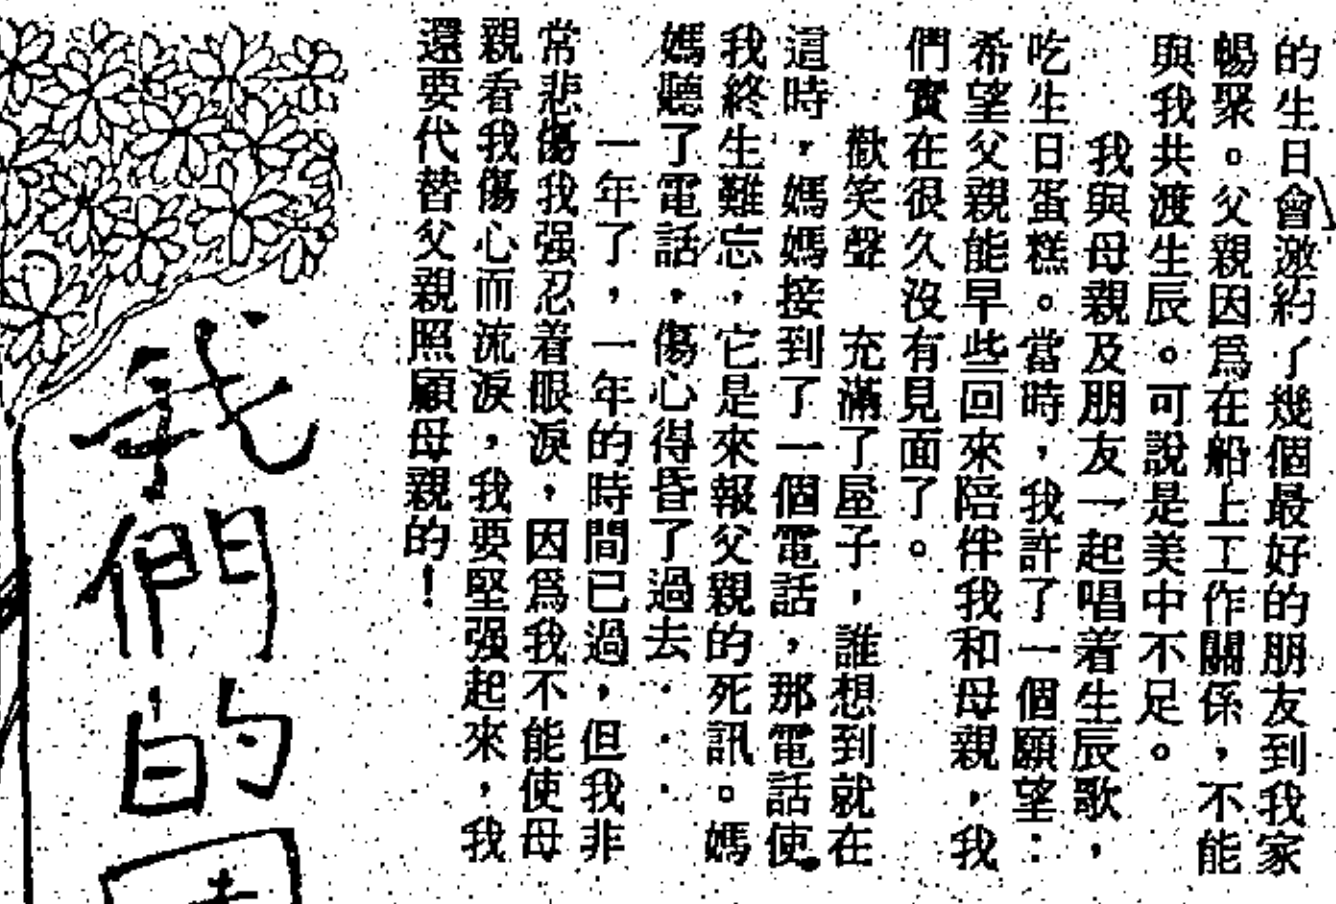 的生日會邀約了幾個最好的朋友到我家
暢聚。父親因爲在船上工作關係，不能
與我共渡生辰。可說是美中不足。
我與母親及朋友一起唱着生辰歌，
吃生日蛋糕。當時，我許了一個願望：
希望父親能早些回來陪伴我和母親，我
們實在很久沒有見面了。
歡笑聲　充滿了屋子，誰想到就在
這時，媽媽接到了一個電話，那電話使
我終生難忘，它是來報父親的死訊。媽
媽聽了電話，傷心得昏了過去．．．
一年了，一年的時間已過，但我非
常悲傷我强忍着眼淚，因爲我不能使母
親看我傷心而流淚，我要堅强起來，我
還要代替父親照顧母親的！
我們的